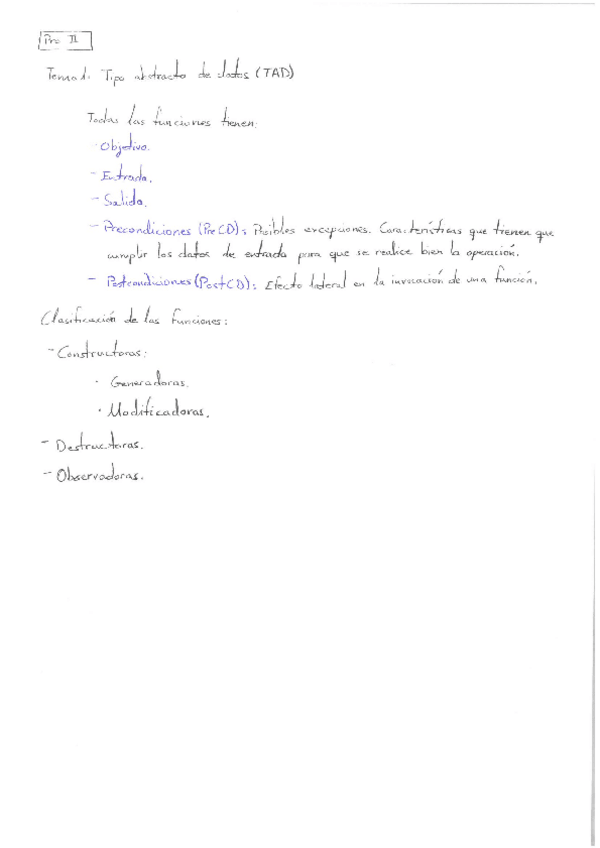 Pro II
Tema 1: Tipo abstracto de datos (TAD)
Todas las funciones tienen:
- Objetivo.
- Entrada.
- Salida.
- Precondiciones (PreCD): Posibles excepciones. Características que tienen que
cumplir los datos de entrada para que se realice bien la operación.
- Postcondiciones (PostCD): Efecto lateral en la invocación de una función.
Clasificación de las funciones:
- Constructoras:
· Generadoras.
· Modificadoras.
- Destructoras.
- Observadoras.